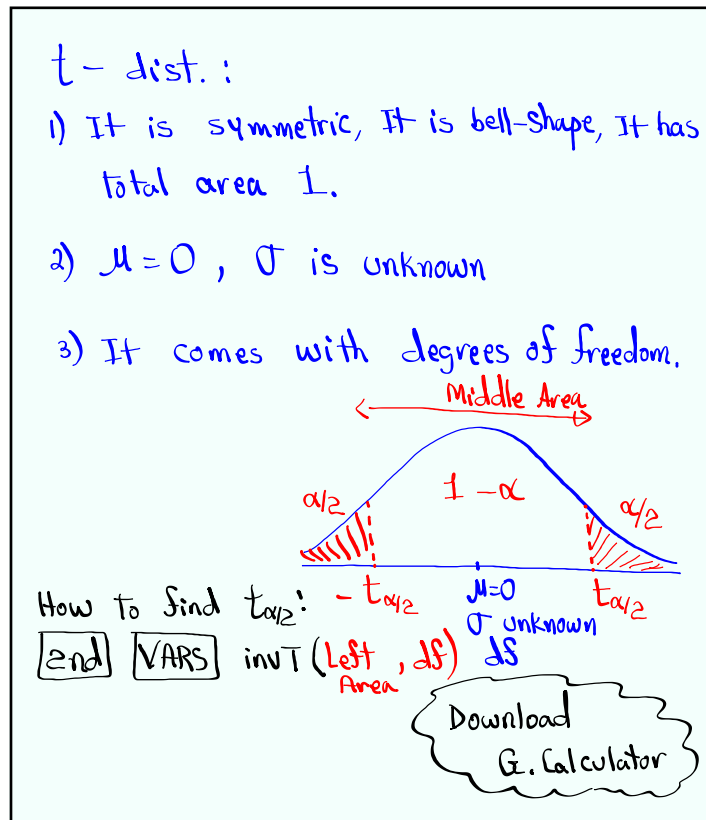 t - dist. :
1) It is symmetric, It is bell-shape, It has
total area 1.
2) μ = 0 , σ is unknown
3) It comes with degrees of freedom.
Middle Area
α/2 1 - α α/2
- t α/2 μ=0 t α/2
σ unknown
df
How to find t α/2 :
2nd VARS invT (Left , df)
Area
Download
G. Calculator